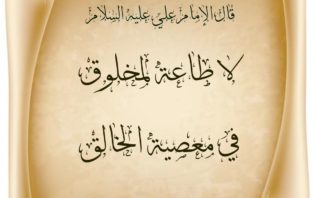 قال الإمام علي عليه السلام
لا طاعة لمخلوق
في معصية الخالق